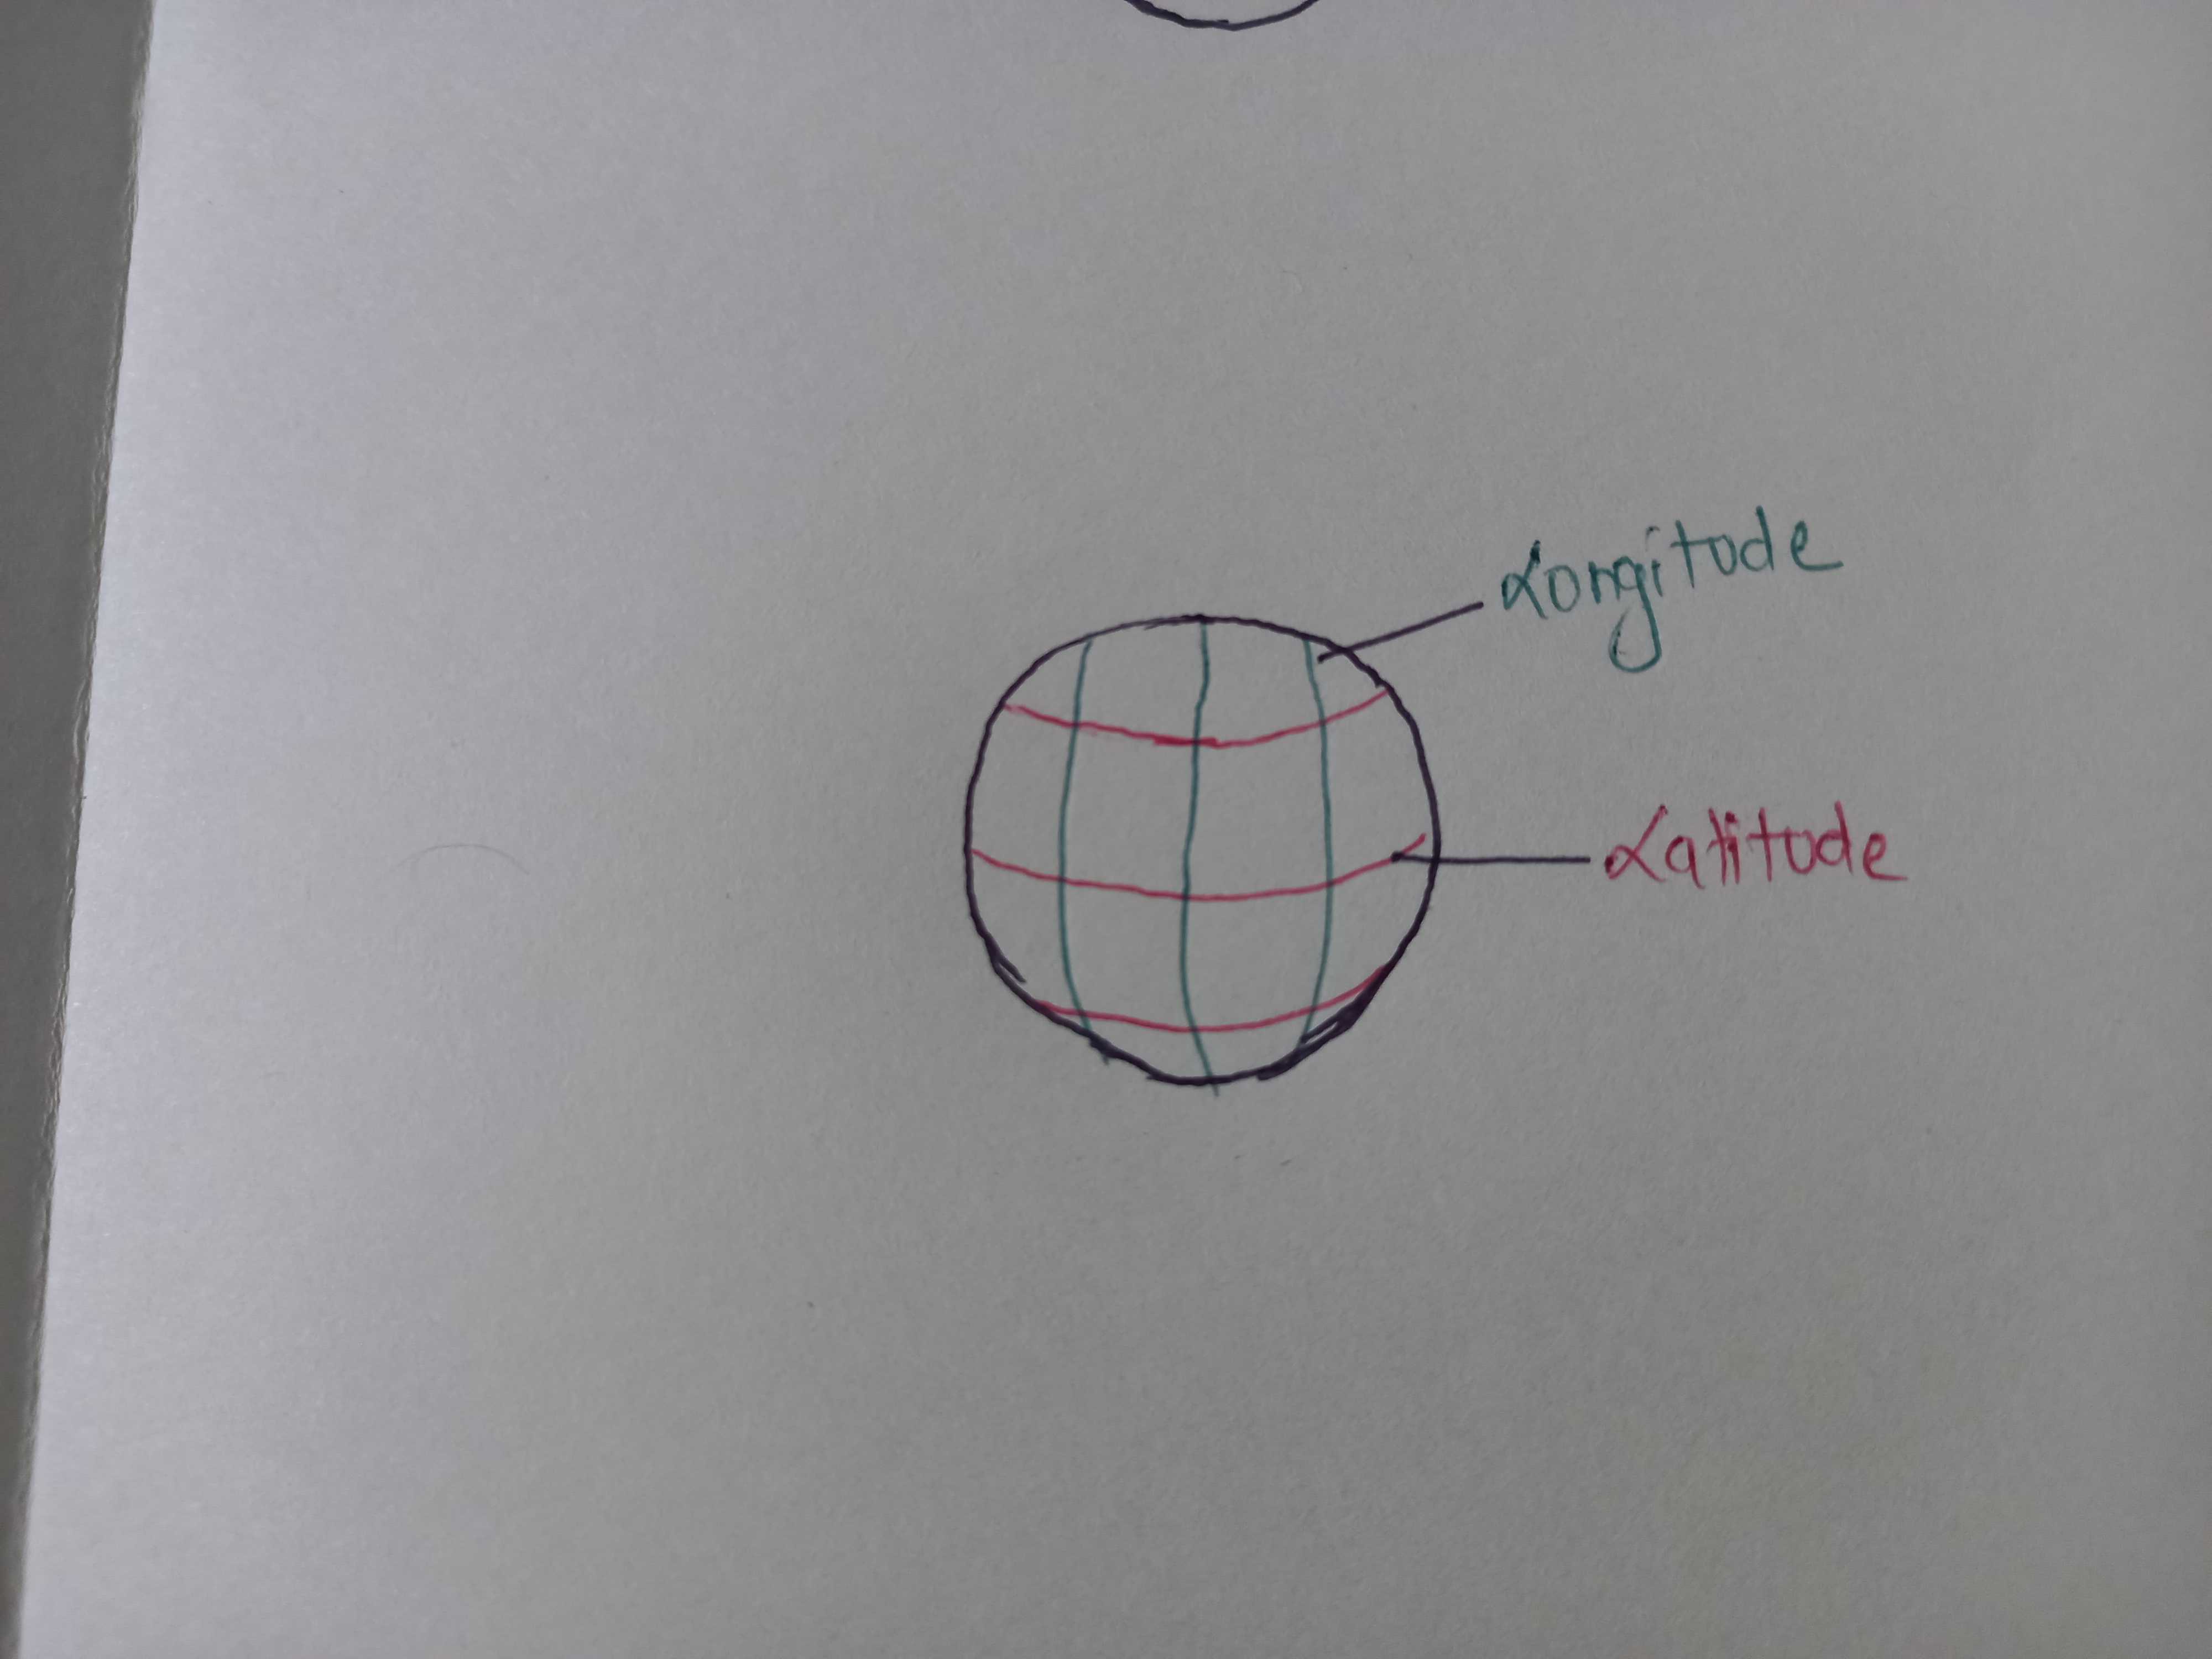 Longitude
Latitude